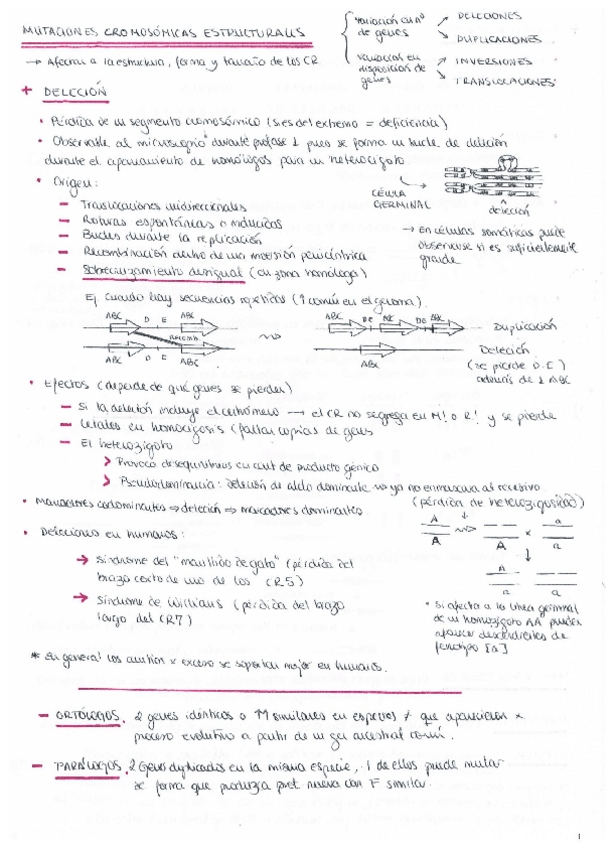 MUTACIONES CROMOSÓMICAS ESTRUCTURALES
→ Afectan a la estructura, forma y tamaño de los CR.
variación en nº de genes
DELECIONES
DUPLICACIONES
variación en disposición de genes
INVERSIONES
TRANSLOCACIONES
+ DELECCIÓN
• Pérdida de un segmento cromosómico (si es del extremo = deficiencia)
• Observable al microscopio durante profase 1 pues se forma un bucle de deleción
durante el apareamiento de homólogos para un heterocigoto
• Origen:
CÉLULA GERMINAL
deleción
→ en células somáticas puede
observarse si es suficientemente
grande
- Translocaciones unidireccionales
- Roturas espontáneas o inducidas
- Bucles durante la replicación
- Recombinación dentro de una inversión pericéntrica
- Sobrecruzamiento desigual (en zona homóloga)
Ej. Cuando hay secuencias repetidas (↑ común en el genoma).
ABC D E ABC
Recomb.
ABC D E ABC
ABC DE ABC DE ABC
Duplicación
ABC
Deleción
(se pierde D.E)
además de 1 ABC
• Efectos (depende de qué genes se pierdan)
- Si la deleción incluye el centrómero → el CR no segrega en M! o R! y se pierde
- Letales en homocigosis (faltan copias de genes
- El heterozigoto
> Provoca desequilibrios en cant de producto génico
> Pseudodominancia: deleción de alelo dominante ⇒ ya no enmascara al recesivo
(pérdida de heterozigosidad)
• Marcadores codominantes ⇒ deleción ⇒ marcadores dominantes
• Deleciones en humanos:
→ Síndrome del "maullido de gato" (pérdida del
brazo corto de uno de los CR5)
→ Síndrome de Williams (pérdida del brazo
largo del CR7)
A
A
A
x
a
a
A
a
a
* Si afecta a la línea germinal
de un homozigoto AA pueden
aparecer descendientes de
fenotipo [a]
* En general los cambios x exceso se soportan mejor en humanos.
- ORTÓLOGOS. 2 genes idénticos o M similares en especies ≠ que aparecieron x
proceso evolutivo a partir de un gen ancestral común.
- PARÁLOGOS. 2 Genes duplicados en la misma especie, 1 de ellos puede mutar
se forma que produzca prot nueva con F similar.
1